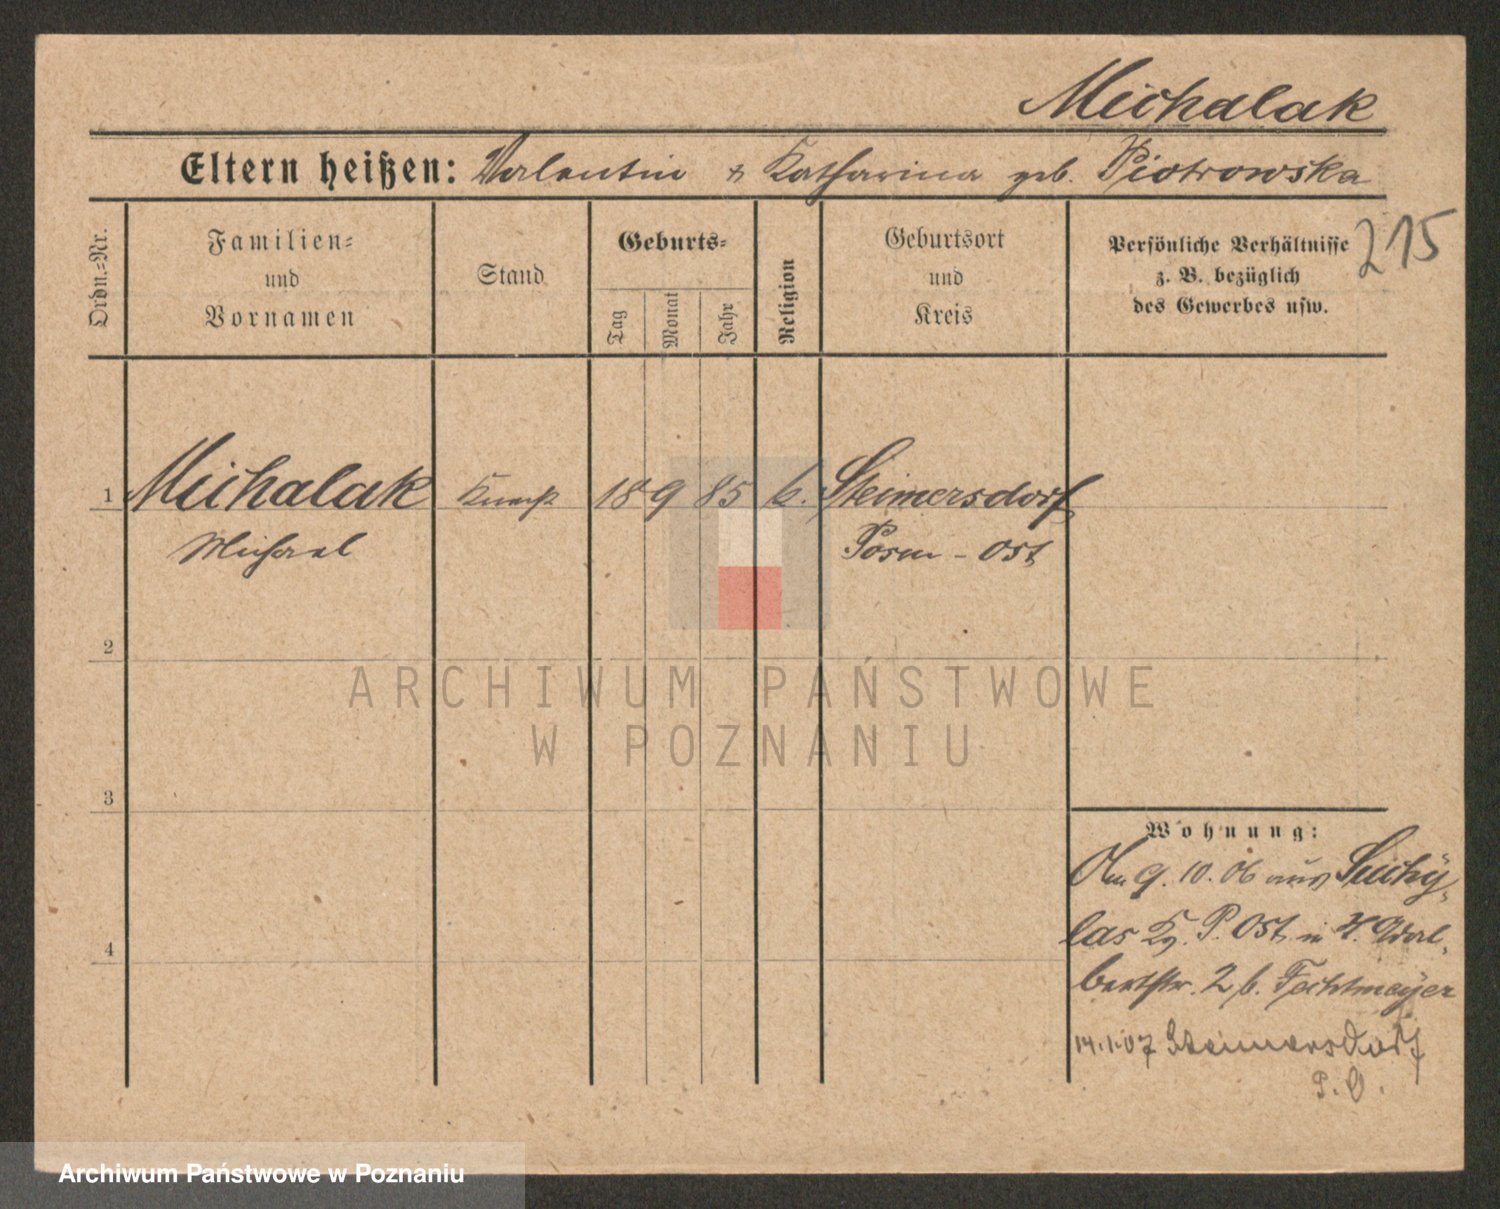 Michalak
Eltern heißen: Valentin & Katharina geb. Piotrowska
215
Ordn.=Nr.
Familien=
und
Vornamen
Stand
Geburts=
Tag
Monat
Jahr
Religion
Geburtsort
und
Kreis
Persönliche Verhältnisse
z. B. bezüglich
des Gewerbes usw.
1 Michalak Knecht 18 9 85 k. Steimersdorf
Michael Posen - Ost
2
ARCHIWUM PAŃSTWOWE
W POZNANIU
3
Wohnung:
Am 9. 10. 06 aus Suchy-
las Kr. P. Ost, in
4
2 b.
14.1.07 Steimersdorf
P. O.
Archiwum Państwowe w Poznaniu